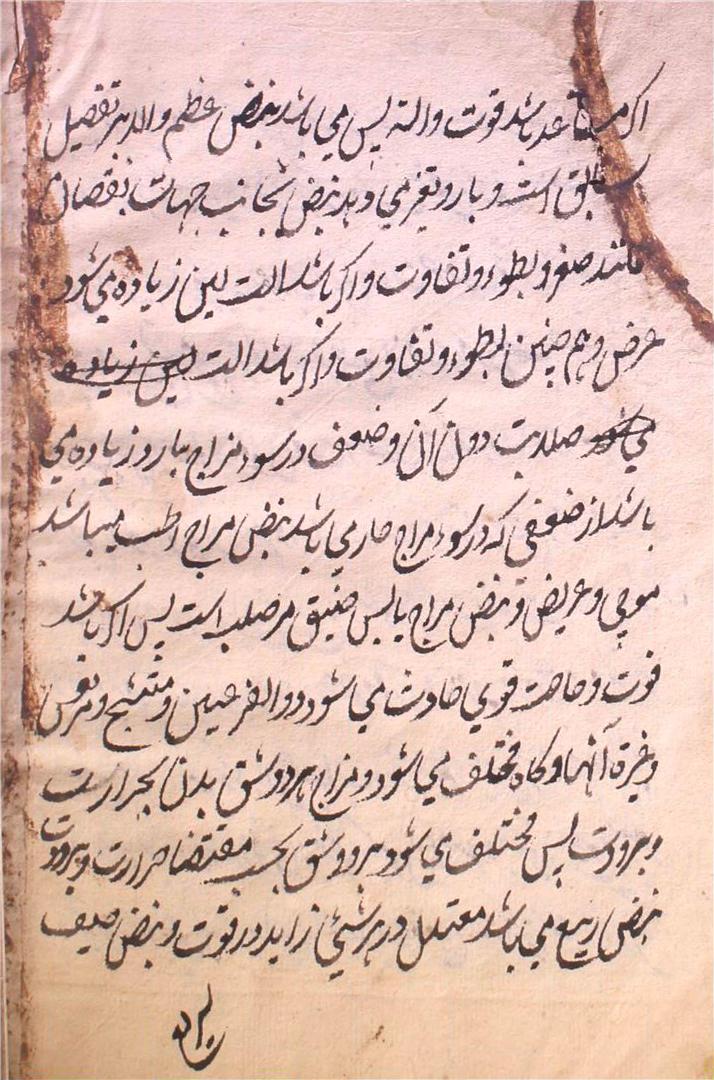 اکر مساعد باشد قوت والة پس می باشد نبض عظم والد هر تفصیل
سابق است و بارد تغیر می دهد نبض بجانب جهات نقصان
مانند صغر و بطوء و تفاوت واکر باشد الت لین زیاده می شود
عرض و هم چنین بطوء و تفاوت واکر باشد الت لین زیاده
می شود صلابت دون آن وضعف در سوء مزاج بارد زیاده می
باشد از ضعفی که در سوء مزاج حار می باشد نبض مزاج رطب میباشد
موجی و عریض و نبض مزاج یابس ضیق مر صلب است پس اکر باشد
قوت و حاجت قوی حادث می شود ذو القرعتین و متشنج و مرتعش
وغیره آنها و کاه مختلف می شود مزاج هر دو شق بدن بحرارت
و برودت پس مختلف می شود هر دو شق بحسب مقتضا حرارت و برودت
نبض ربیع می باشد معتدل در هر شیئی زاید در قوت و نبض صیف